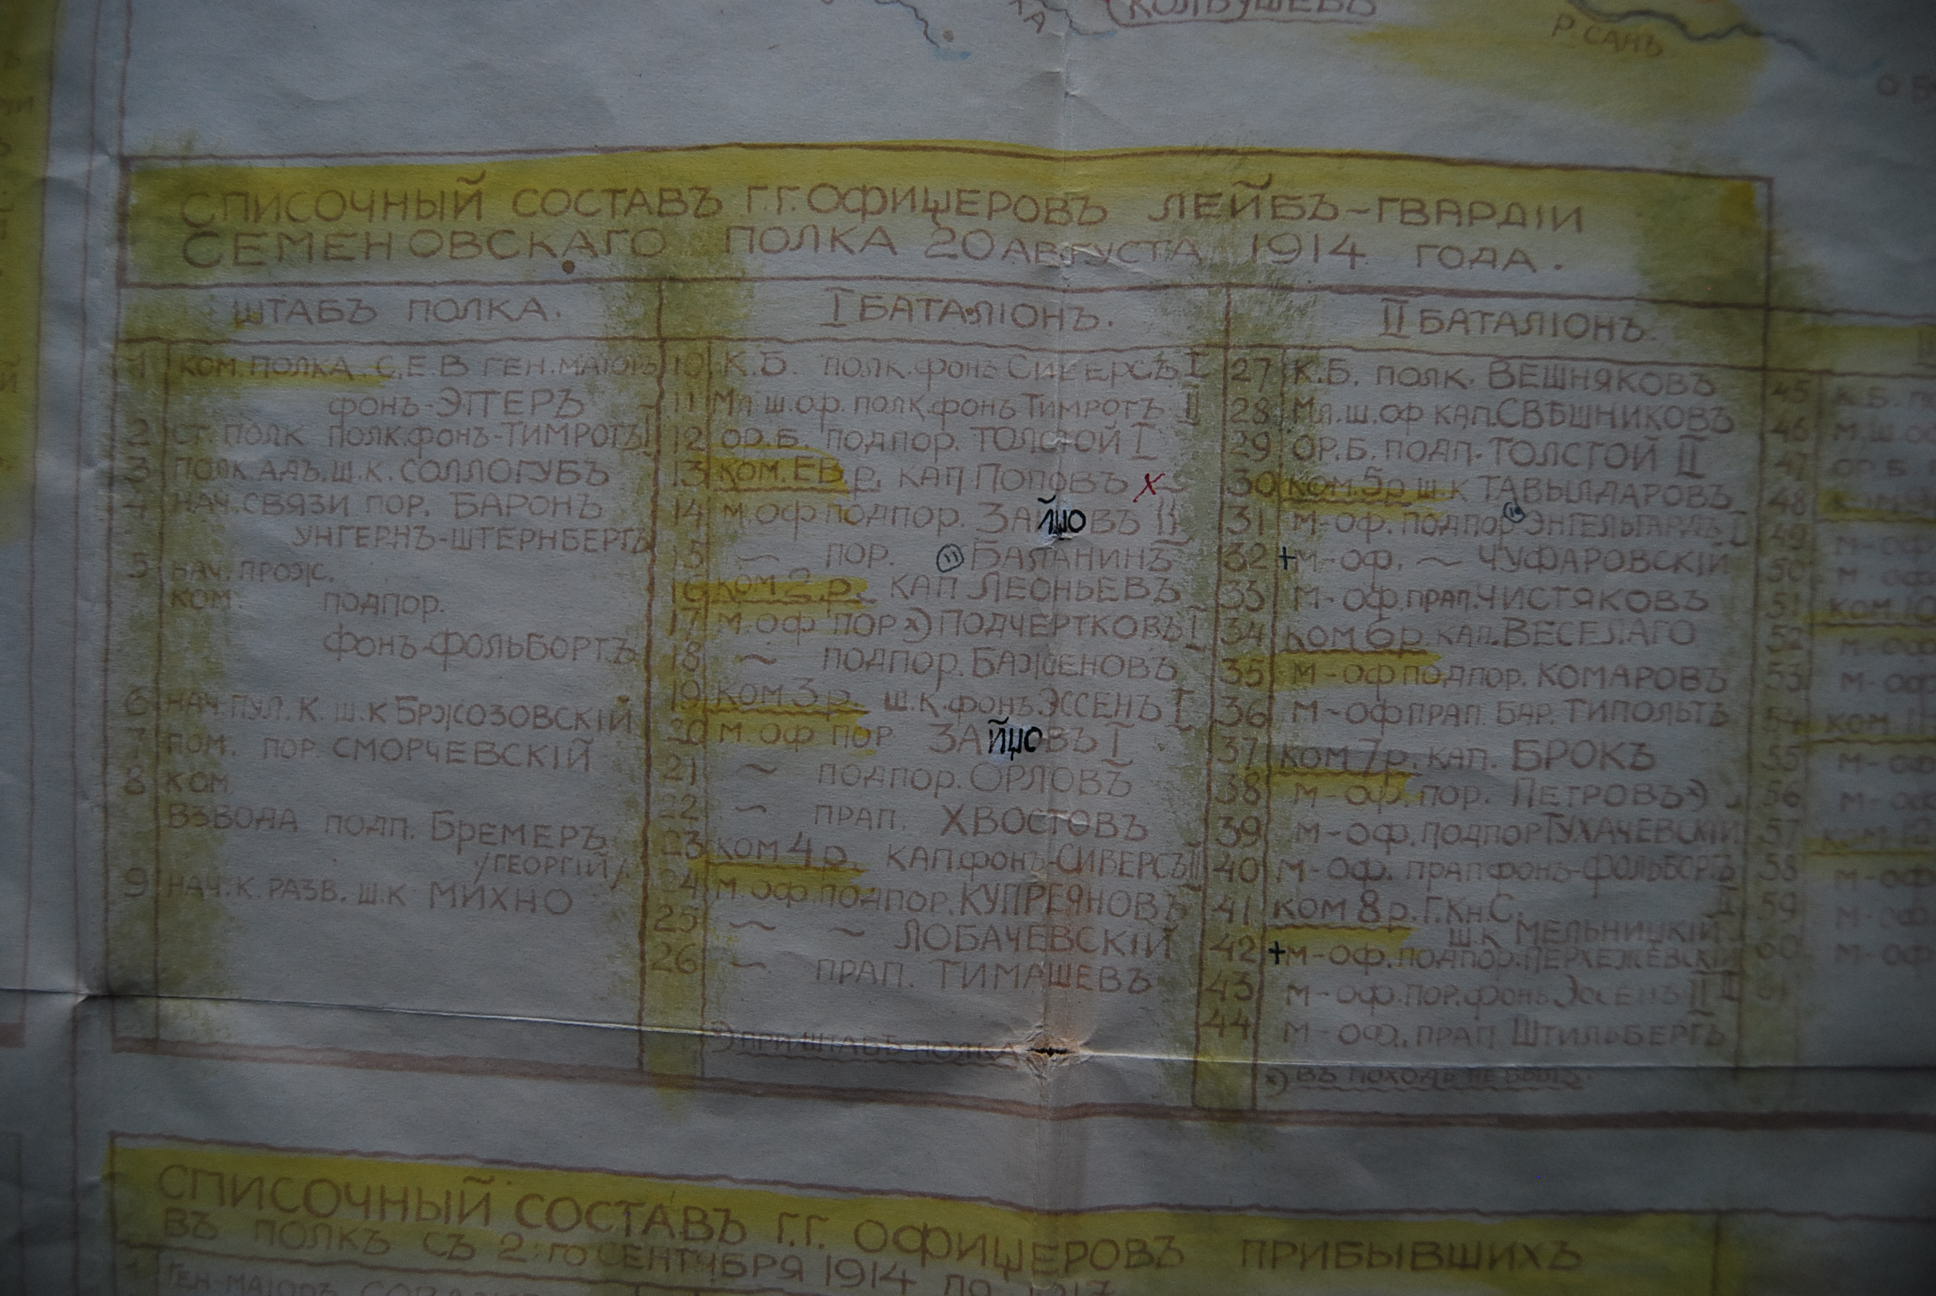 КОЛБУШЕВЪ
Р. САНЪ
СПИСОЧНЫЙ СОСТАВЪ Г.Г. ОФИЦЕРОВЪ ЛЕЙБЪ-ГВАРДІИ
СЕМЕНОВСКАГО ПОЛКА 20 АВГУСТА 1914 ГОДА.
ШТАБЪ ПОЛКА.
1 КОМ. ПОЛКА С.Е.В ГЕН. МАІОРЪ
ФОНЪ-ЭТТЕРЪ
2 СТ. ПОЛК ПОЛК. ФОНЪ-ТИМРОТЪ I
3 ПОЛК. АДЪ. Ш.К. СОЛЛОГУБЪ
4 НАЧ. СВЯЗИ ПОР. БАРОНЪ
УНГЕРНЪ-ШТЕРНБЕРГЪ
5 НАЧ. ПРОЖ.
КОМ. ПОДПОР.
ФОНЪ-ФОЛЬБОРТЪ
6 НАЧ. ПУЛ. К. Ш.К БРЖОЗОВСКІЙ
7 ПОМ. ПОР. СМОРЧЕВСКІЙ
8 КОМ.
ВЗВОДА ПОДП. БРЕМЕРЪ
/ГЕОРГІЙ/
9 НАЧ. К. РАЗВ. Ш.К МИХНО
I БАТАЛІОНЪ.
10 К.Б. ПОЛК. ФОНЪ СИВЕРСЪ I
11 МЛ. Ш. ОФ. ПОЛК. ФОНЪ ТИМРОТЪ II
12 ОР.Б. ПОДПОР. ТОЛСТОЙ I
13 КОМ. ЕВ Р. КАП ПОПОВЪ X
14 М. ОФ ПОДПОР. ЗАЙЦОВЪ II
15 ~ ПОР. (11) БАЛАНИНЪ
16 КОМ 2 Р. КАП ЛЕОНЬЕВЪ
17 М. ОФ ПОР х) ПОДЧЕРТКОВЪ I
18 ~ ПОДПОР. БАЖЕНОВЪ
19 КОМ 3 Р. Ш.К. ФОНЪ ЭССЕНЪ I
20 М. ОФ ПОР ЗАЙЦОВЪ I
21 ~ ПОДПОР. ОРЛОВЪ
22 ~ ПРАП. ХВОСТОВЪ
23 КОМ 4 Р. КАП. ФОНЪ-СИВЕРСЪ II
24 М. ОФ. ПОДПОР. КУПРЕЯНОВЪ
25 ~ ~ ЛОБАЧЕВСКІЙ
26 ~ ПРАП. ТИМАШЕВЪ
х) ПРИ ШТАБѢ ПОЛКА
II БАТАЛІОНЪ.
27 К.Б. ПОЛК. ВЕШНЯКОВЪ
28 МЛ. Ш. ОФ КАП. СВѢШНИКОВЪ
29 ОР.Б. ПОДП. ТОЛСТОЙ II
30 КОМ. 5 Р. Ш.К ТАВЫЛДАРОВЪ
31 М-ОФ. ПОДПОР ЭНГЕЛЬГАРДЪ I
32 +М-ОФ. ~ ЧУФАРОВСКІЙ
33 М-ОФ. ПРАП. ЧИСТЯКОВЪ
34 КОМ 6 Р. КАП. ВЕСЕЛАГО
35 М-ОФ ПОДПОР. КОМАРОВЪ
36 М-ОФ ПРАП. БАР. ТИПОЛЬТЪ
37 КОМ 7 Р. КАП. БРОКЪ
38 М-ОФ. ПОР. ПЕТРОВЪ х)
39 М-ОФ. ПОДПОР ТУХАЧЕВСКІЙ
40 М-ОФ. ПРАП ФОНЪ-ФОЛЬБОРТЪ II
41 КОМ 8 Р. Г. КН. С.
Ш.К МЕЛЬНИЦКІЙ
42 +М-ОФ. ПОДПОР. ПЕРХЕЖЕВСКІЙ
43 М-ОФ. ПОР. ФОНЪ ЭССЕНЪ II
44 М-ОФ. ПРАП ШТИЛЬБЕРГЪ
х) ВЪ ПОХОДѢ НЕ БЫЛЪ.
45 К.Б.
46 М.Ш.
47 ОР.Б.
48 КОМ
49 М-ОФ
50 М-ОФ
51 КОМ 10
52 М-ОФ
53 М-ОФ
54 КОМ 11
55 М-ОФ
56 М-ОФ
57 КОМ 12
58 М-ОФ
59 М-ОФ
60 М-ОФ
61
СПИСОЧНЫЙ СОСТАВЪ Г.Г. ОФИЦЕРОВЪ ПРИБЫВШИХЪ
ВЪ ПОЛКЪ СЪ 2-ГО СЕНТЯБРЯ 1914 ПО 1917
1 ГЕН-МАІОРЪ